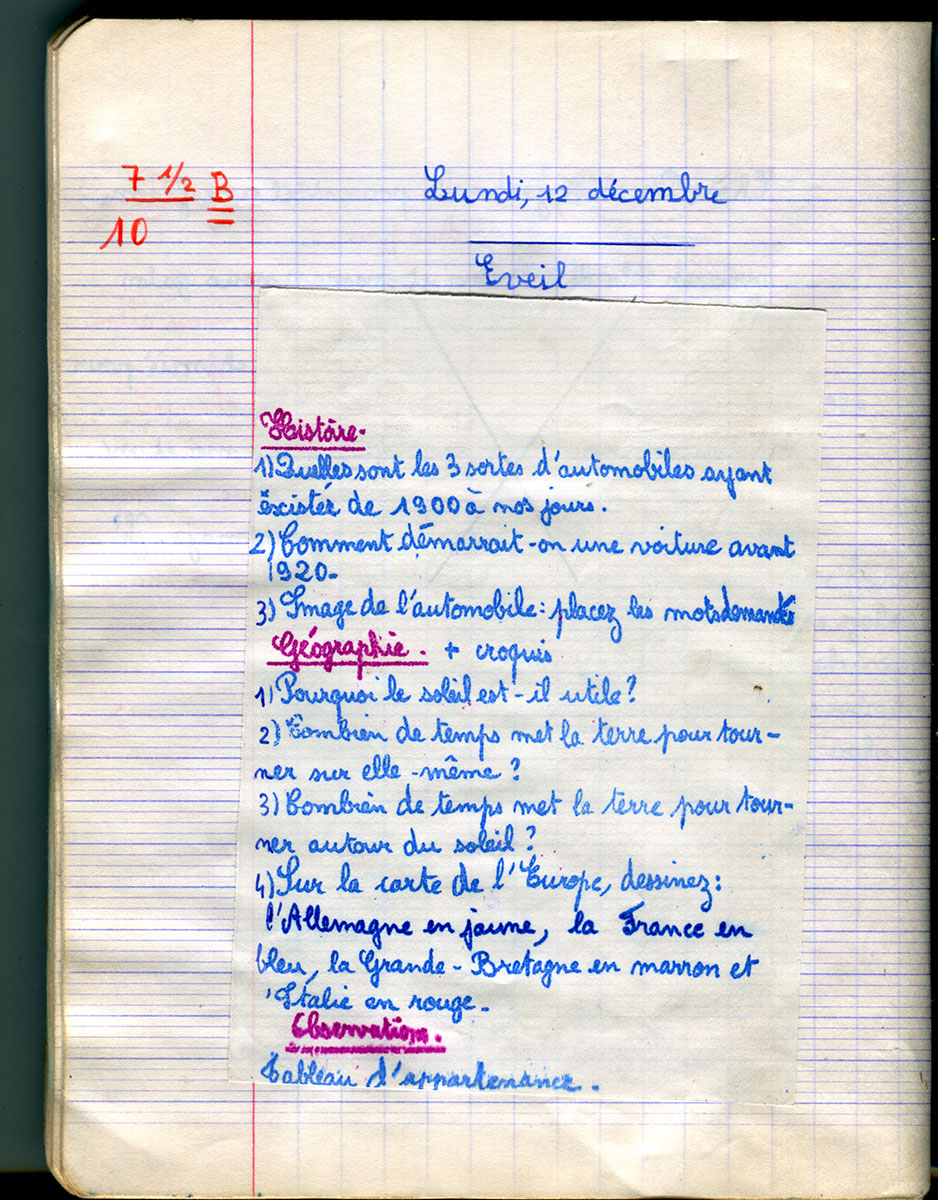 7 1/2 B
10
Lundi, 12 décembre
Eveil
Histoire.
1) Quelles sont les 3 sortes d'automobiles ayant
éxistér de 1900 à nos jours.
2) Comment démarrait-on une voiture avant
1920.
3) Image de l'automobile: placez les mots demandés
Géographie. + croquis
1) Pourquoi le soleil est-il utile?
2) Combien de temps met la terre pour tour-
ner sur elle-même?
3) Combien de temps met la terre pour tour-
ner autour du soleil?
4) Sur la carte de l'Europe, dessinez:
l'Allemagne en jaune, la France en
bleu, la Grande-Bretagne en marron et
'Italie en rouge.
Observations.
Tableau d'appartenance.